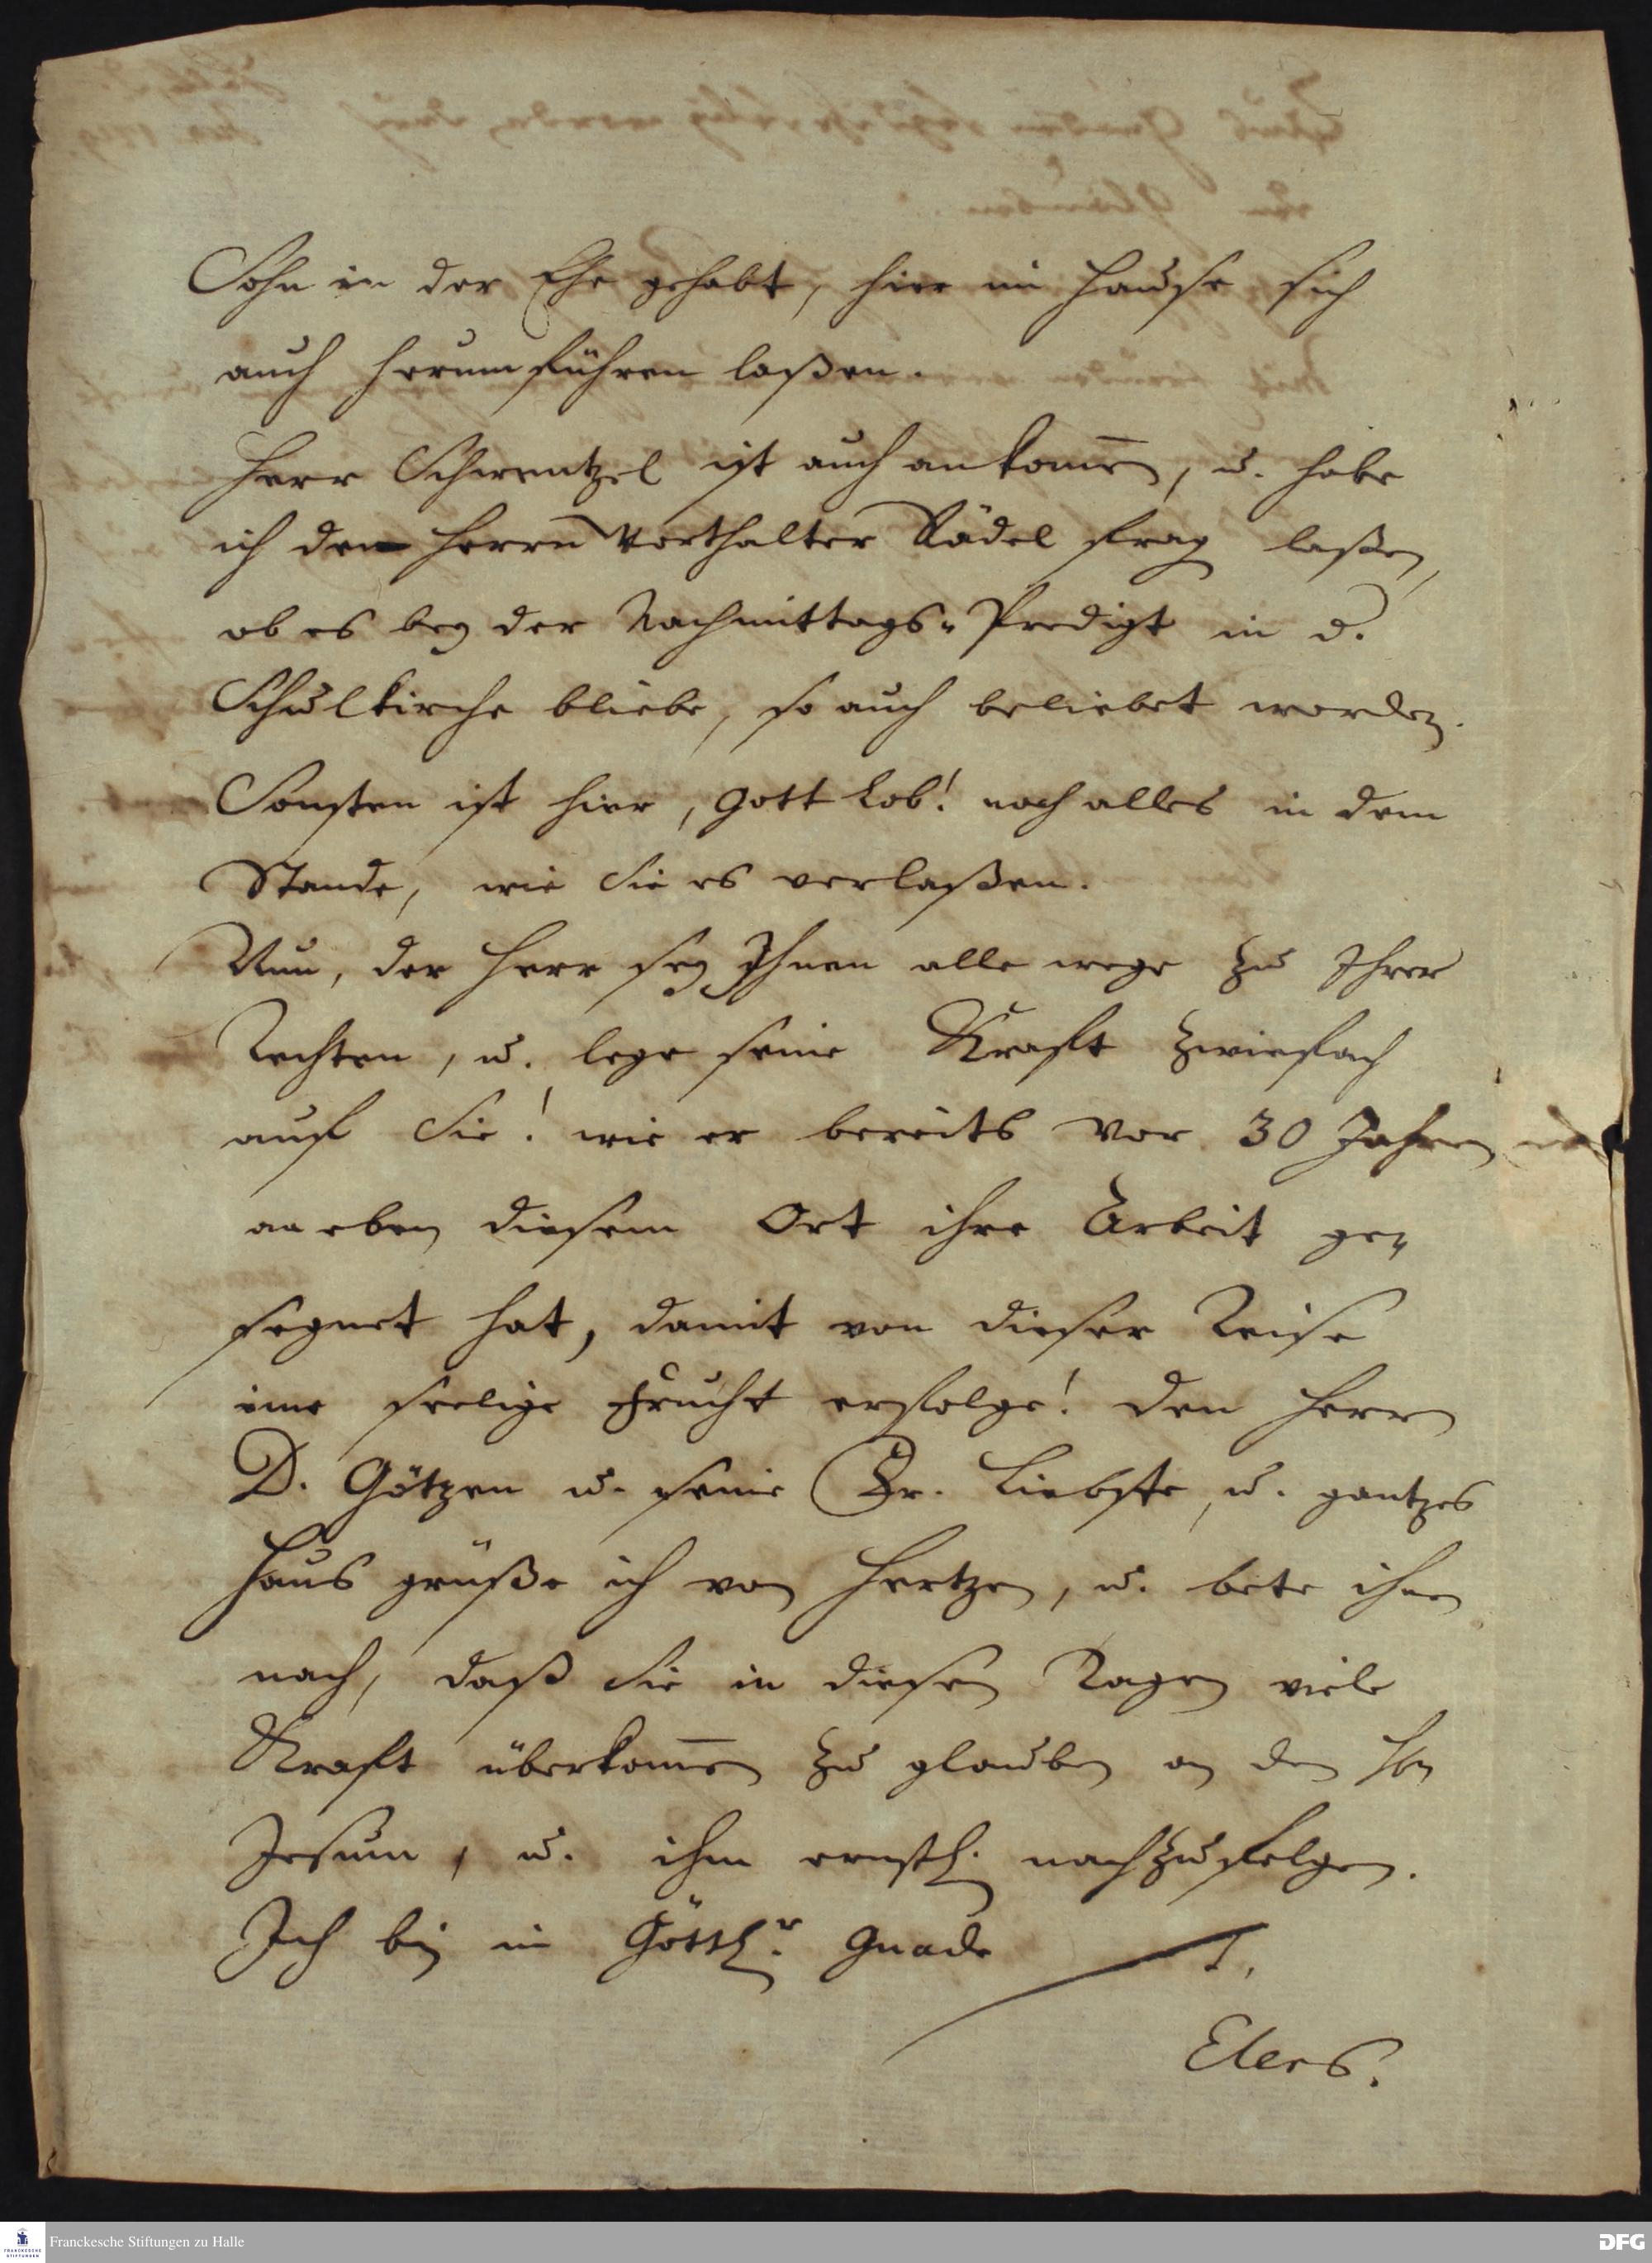 Sohn in der Ehe gehabt, hier im Hause sich
auch herumführen laßen.
Herr Schwentzel ist auch ankom̅en, u. habe
ich den Herrn Vorthalter Rädel frag laßen,
ob es bey der Nachmittags-Predigt in d.
Schulkirche bliebe, so auch beliebet worden.
Sonsten ist hier, Gott Lob! noch alles in dem
Stande, wie Sie es verlaßen.
Nun, der Herr sey Ihnen alle wege zu Ihrer
Rechten, u. lege seine Krafft zwiefach
auf Sie! wie er bereits vor 30 Jahren
an eben diesem Ort ihre Arbeit ge-
segnet hat, damit von dieser Reise
eine seelige Frucht erfolge! Den Herrn
D. Götzen u. seine Fr. Liebste, u. gantzes
Haus grüße ich von Hertzen, u. bete ihnen
nach, daß Sie in diesen Tagen viele
Kraft überkom̅en zu glauben an den Hn
Jesum, u. ihm ernstl. nachzufolgen.
Ich bin in Göttl.r Gnade
Elers.
Franckesche Stiftungen zu Halle
FRANCKESCHE
STIFTUNGEN
DFG